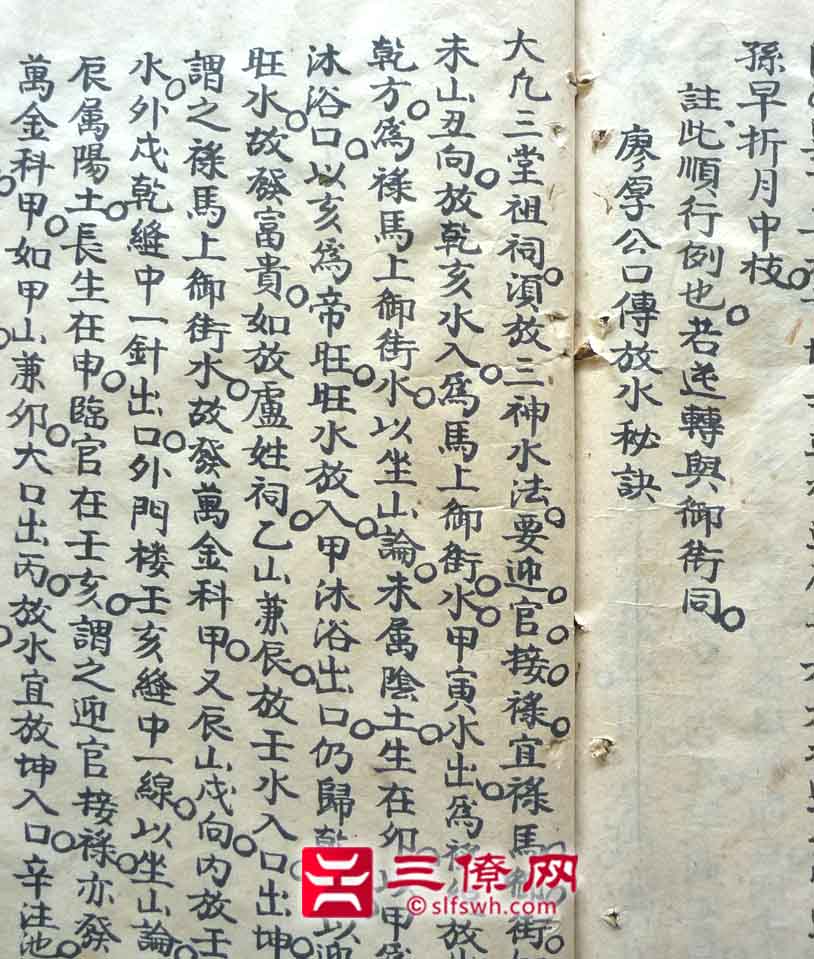 孫早折月中枝
註此順行例也若逆轉與御街同
廖厚公口傳放水秘訣
大凢三堂祖祠湏放三神水法要迎官接祿宜祿馬街
未山丑向放乾亥水入為馬上御街水甲寅水出為放
乾方為祿馬上御街水以坐山論未属陰土生在卯甲
沐浴口以亥為帝旺旺水放入甲沐浴出口仍歸乾以迎
旺水故發富貴如放盧姓祠乙山兼辰放壬水入口出坤
謂之祿馬上御街水故發萬金科甲又辰山戍向内放壬
水外戍乾縫中一針出口外門楼壬亥縫中一線以坐山論
辰属陽土長生在申臨官在壬亥謂之迎官接祿亦發
萬金科甲如甲山兼卯大口出丙放水宜放坤入口辛注池
三僚网
slfswh.com